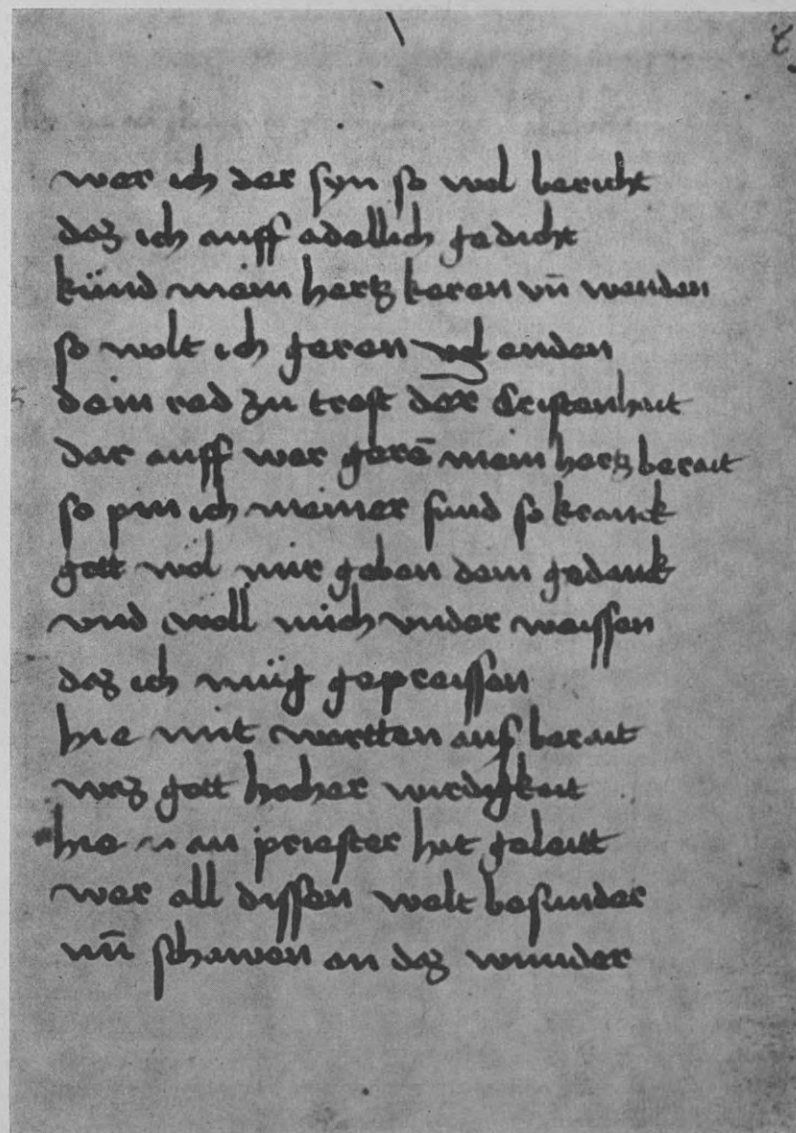 8
wer ich der syn so wol bericht
daz ich auff adellich gedicht
künd mein hertz keren vn̄ wenden
so wolt ich geren vol enden
dein red zu trost der Cristenhait
dar auff wer gerē mein hertz berait
so pin ich meiner sünd so kranck
gott wöl mir geben dein gedanck
vnd wöll mich vnder weissen
daz ich müg gepreissen
hie mit wortten auß berait
waz gott hocher wirdigkait
hie an priester hat geleitt
wer all dissen welt besunder
vn̄ schawen an daz wunder